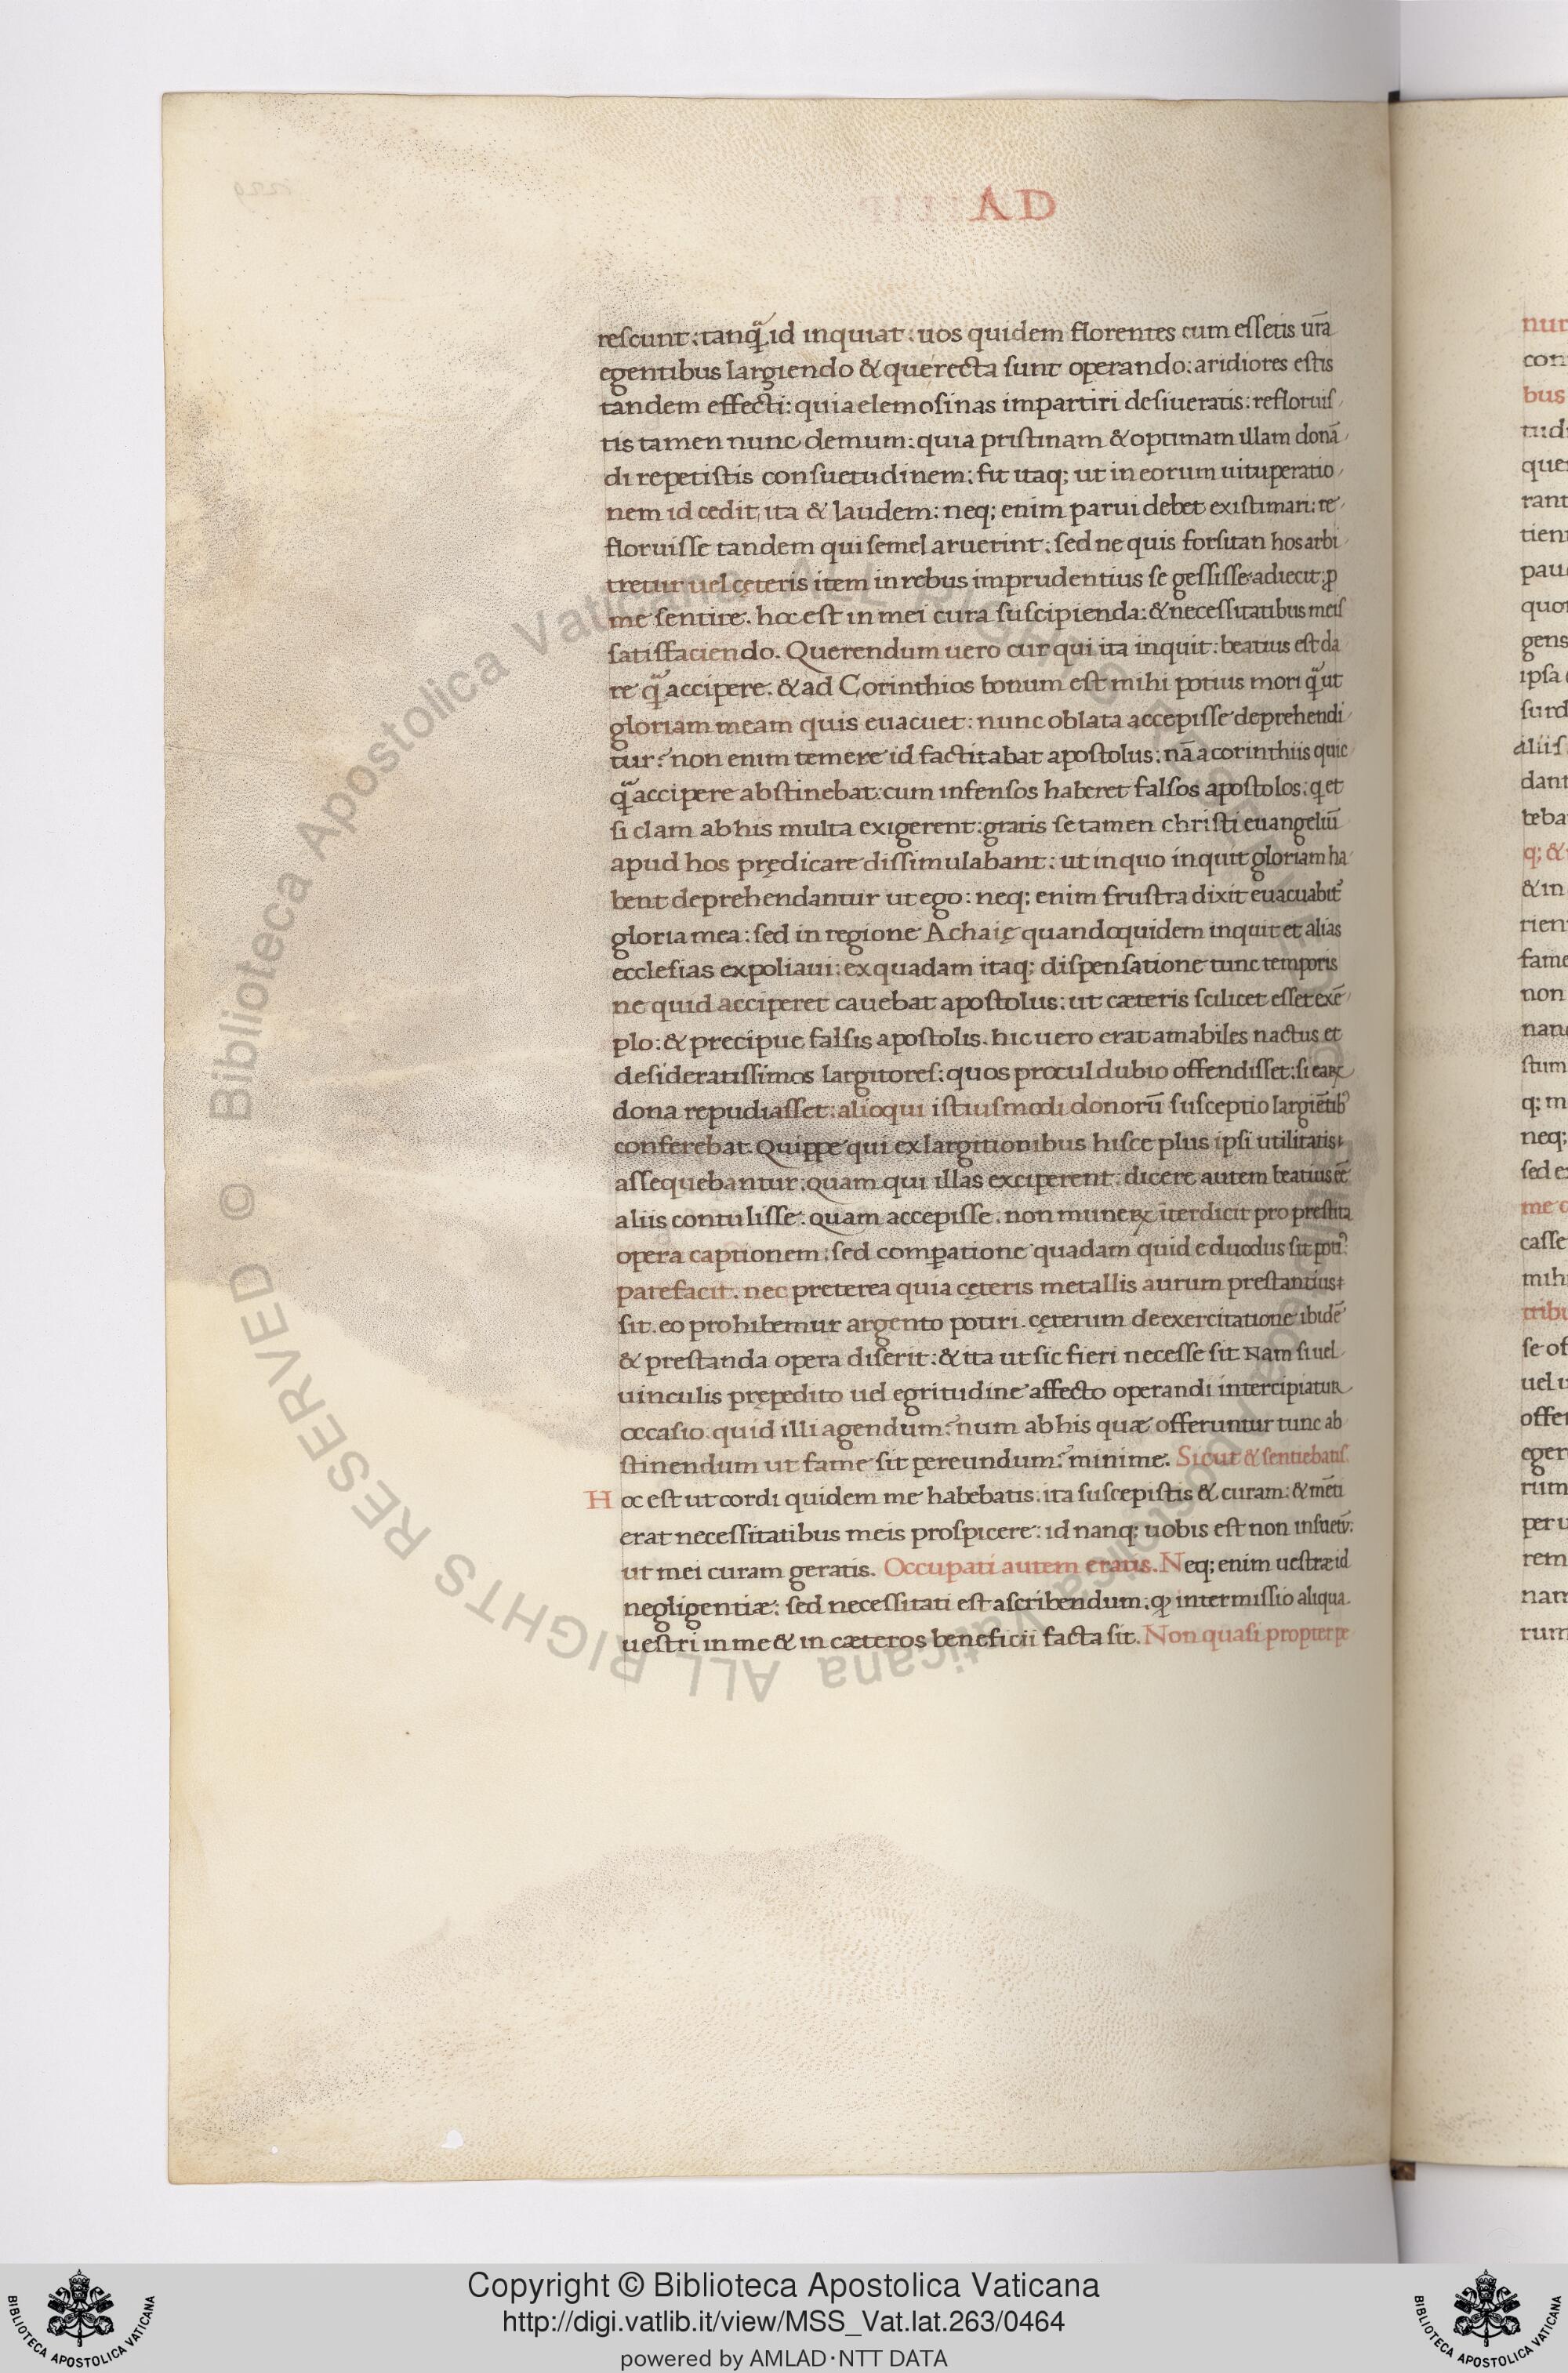 AD
rescunt: tanq̃ id inquiat: uos quidem florentes cum essetis ur̃a
egentibus largiendo & que recta sunt operando: aridiores estis
tandem effecti: quia elemosinas impartiri desiueratis: refloruis
tis tamen nunc demum: quia pristinam & optimam illam donā
di repetistis consuetudinem: fit itaq; ut in eorum uituperatio
nem id cedit, ita & laudem: neq; enim parui debet existimari: re
floruisse tandem qui semel aruerint: sed ne quis forsitan hos arbi
tretur uel cęteris item in rebus imprudentius se gessisse adiecit: ꝓ
me sentire. hoc est in mei cura suscipienda: & necessitatibus meis
satisfaciendo. Querendum uero cur qui ita inquit: beatius est da
re q̃ accipere. & ad Corinthios bonum est mihi potius mori q̃ ut
gloriam meam quis euacuet: nunc oblata accepisse deprehendi
tur? non enim temere id factitabat apostolus: nā a corinthiis quic
q̃ accipere abstinebat: cum infensos haberet falsos apostolos: q et
si clam ab his multa exigerent: gratis se tamen christi euangeliū
apud hos prędicare dissimulabant: ut in quo inquit gloriam ha
bent deprehendantur ut ego: neq; enim frustra dixit euacuabit᷑
gloria mea: sed in regione Achaię quandoquidem inquit et alias
ecclesias expoliaui: ex quadam itaq; dispensatione tunc temporis
ne quid acciperet cauebat apostolus: ut cæteris scilicet esset exē
plo: & precipue falsis apostolis. hic uero erat amabiles nactus et
desideratissimos largitores: quos procul dubio offendisset: si eaꝝ
dona repudiasset: alioqui istiusmodi donorū susceptio largiētibꝰ
conferebat. Quippe qui ex largitionibus hisce plus ipsi utilitatis
assequebantur: quam qui illas exciperent: dicere autem beatius eē
aliis contulisse: quam accepisse. non muneꝝ īterdicit pro prestita
opera captionem: sed comꝑatione quadam quid e duobus sit potiꝰ
patefacit. nec preterea quia cęteris metallis aurum prestantius
sit. eo prohibemur argento potiri. cęterum de exercitatione ibidē
& prestanda opera diserit: & ita ut sic fieri necesse sit. Nam si uel
uinculis prępedito uel egritudine affecto operandi intercipiatur
occasio: quid illi agendum? num ab his quæ offeruntur tunc ab
stinendum ut fame sit pereundum? minime. Sicut & sentiebatis.
Hoc est ut cordi quidem me habebatis: ita suscepistis & curam: & mēti
erat necessitatibus meis prospicere: id nanq; uobis est non insuetū:
ut mei curam geratis. Occupati autem eratis. Neq; enim uestræ id
negligentiæ: sed necessitati est ascribendum: ꝙ intermissio aliqua
uestri in me & in cæteros beneficii facta sit. Non quasi propter pe
© Biblioteca Apostolica Vaticana ALL RIGHTS RESERVED
Copyright © Biblioteca Apostolica Vaticana
http://digi.vatlib.it/view/MSS_Vat.lat.263/0464
powered by AMLAD·NTT DATA
BIBLIOTECA APOSTOLICA VATICANA
BIBLIOTECA APOSTOLICA VATICANA